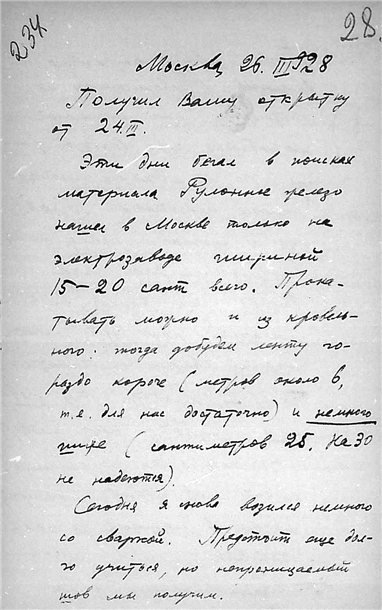 234
28.
Москва, 26. III 928
Получил Вашу открытку
от 24. III.
Эти дни бегал в поисках
материала Рулонное железо
нашел в Москве только на
электрозаводе шириной
15-20 сант всего. Прока-
тывать можно и из кровель-
ного: тогда добудем ленту го-
раздо короче (метров около 6,
т.е. для нас достаточно) и немного
шире (сантиметров 25. На 30
не надеются).
Сегодня я снова возился немного
со сваркой. Предстоит еще дол-
го учиться, но непроницаемый
шов мы получим.